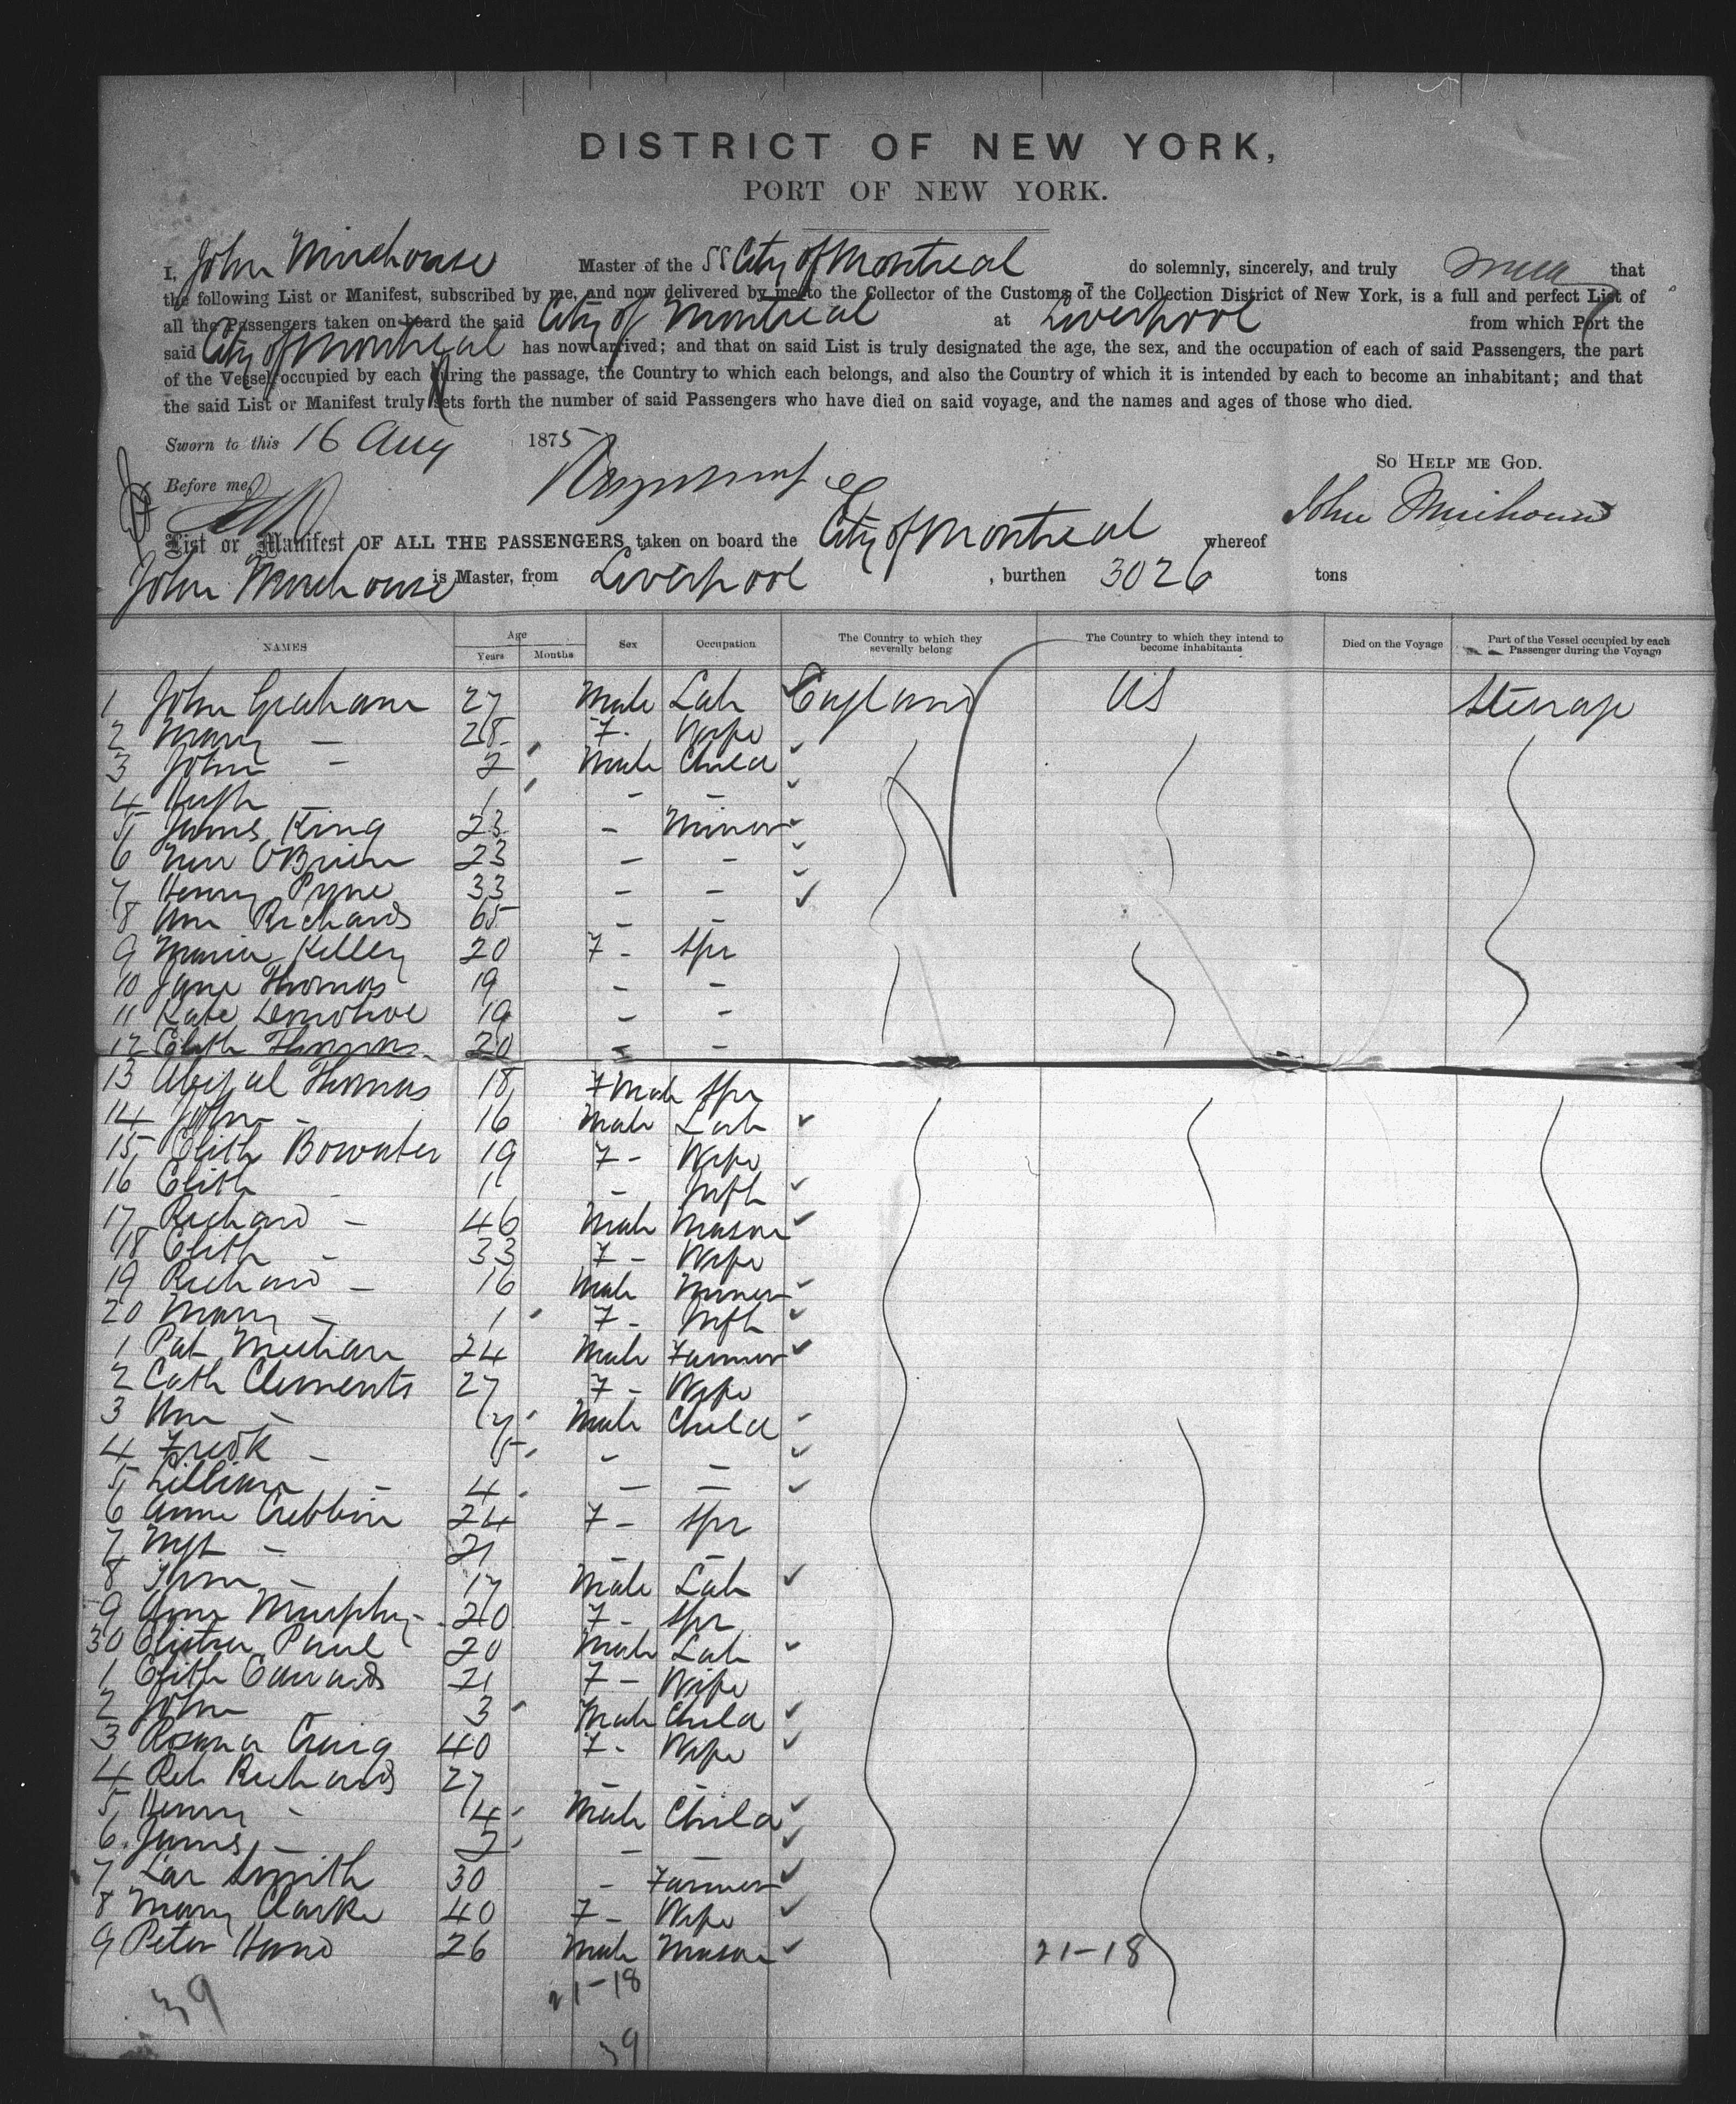 DISTRICT OF NEW YORK,
PORT OF NEW YORK.
I, John Mirehouse Master of the SS City of Montreal do solemnly, sincerely, and truly swear that
the following List or Manifest, subscribed by me, and now delivered by me to the Collector of the Customs of the Collection District of New York, is a full and perfect List of
all the Passengers taken on board the said City of Montreal at Liverpool from which Port the
said City of Montreal has now arrived; and that on said List is truly designated the age, the sex, and the occupation of each of said Passengers, the part
of the Vessel occupied by each during the passage, the Country to which each belongs, and also the Country of which it is intended by each to become an inhabitant; and that
the said List or Manifest truly sets forth the number of said Passengers who have died on said voyage, and the names and ages of those who died.
Sworn to this 16 Aug 1875
So Help me God.
Before me,
John Mirehouse
List or Manifest OF ALL THE PASSENGERS taken on board the City of Montreal whereof
John Mirehouse is Master, from Liverpool, burthen 3026 tons
NAMES Age Years Months Sex Occupation The Country to which they severally belong The Country to which they intend to become inhabitants Died on the Voyage Part of the Vessel occupied by each Passenger during the Voyage
1 John Graham 27 Male Lab England US Steerage
2 Mary — 28 F- Wife
3 John — 2 Male Child
4 Hugh — 1 - -
5 James King 23 - Miner
6 Wm O'Brien 23 - -
7 Henry Pyne 33 - -
8 Wm Richards 65 - -
9 Maria Kelley 20 F- Spr
10 Jane Thomas 19 - -
11 Kate 19 - -
12 Elith Thomas 20 - -
13 Abigal Thomas 18 Fmale Spr
14 John - 16 Male Lab
15 Elith Bowater 19 F- Wife
16 Elith - 11 - Inft
17 Richard - 46 Male Mason
18 Elith - 33 F- Wife
19 Richard - 16 Male Miner
20 Mary - 1 F- Inft
1 Pat Meehan 24 Male Farmer
2 Cath Clements 27 F- Wife
3 Wm - 7 Male Child
4 Fredk - 5 - -
5 Lillian - 4 - -
6 Anne Cribbin 24 F- Spr
7 - 21 - -
8 - 17 Male Lab
9 Ann Murphy 20 F- Spr
30 Paul 20 Male Lab
1 Elith Edwards 21 F- Wife
2 John - 3 Male Child
3 Rosana Craig 40 F- Wife
4 Reb Richards 27 - -
5 Henry - 4 Male Child
6 James - 2 - -
7 Smith 30 - Farmer
8 Mary Clarke 40 F- Wife
9 Peter Hand 26 Male Mason 21-18
39 21-18
39